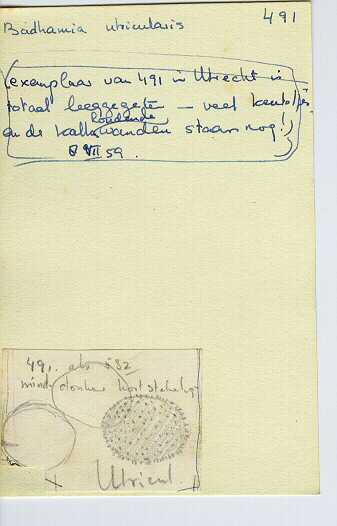 491
Badhamia utricularis
(exemplaar van 491 in Utrecht is
totaal leeggegeten — veel keuteltjes
en de kalkhoudende wanden staan nog!)
VII 59.
491. als 532
minder donker kort stekelig
Utricul.